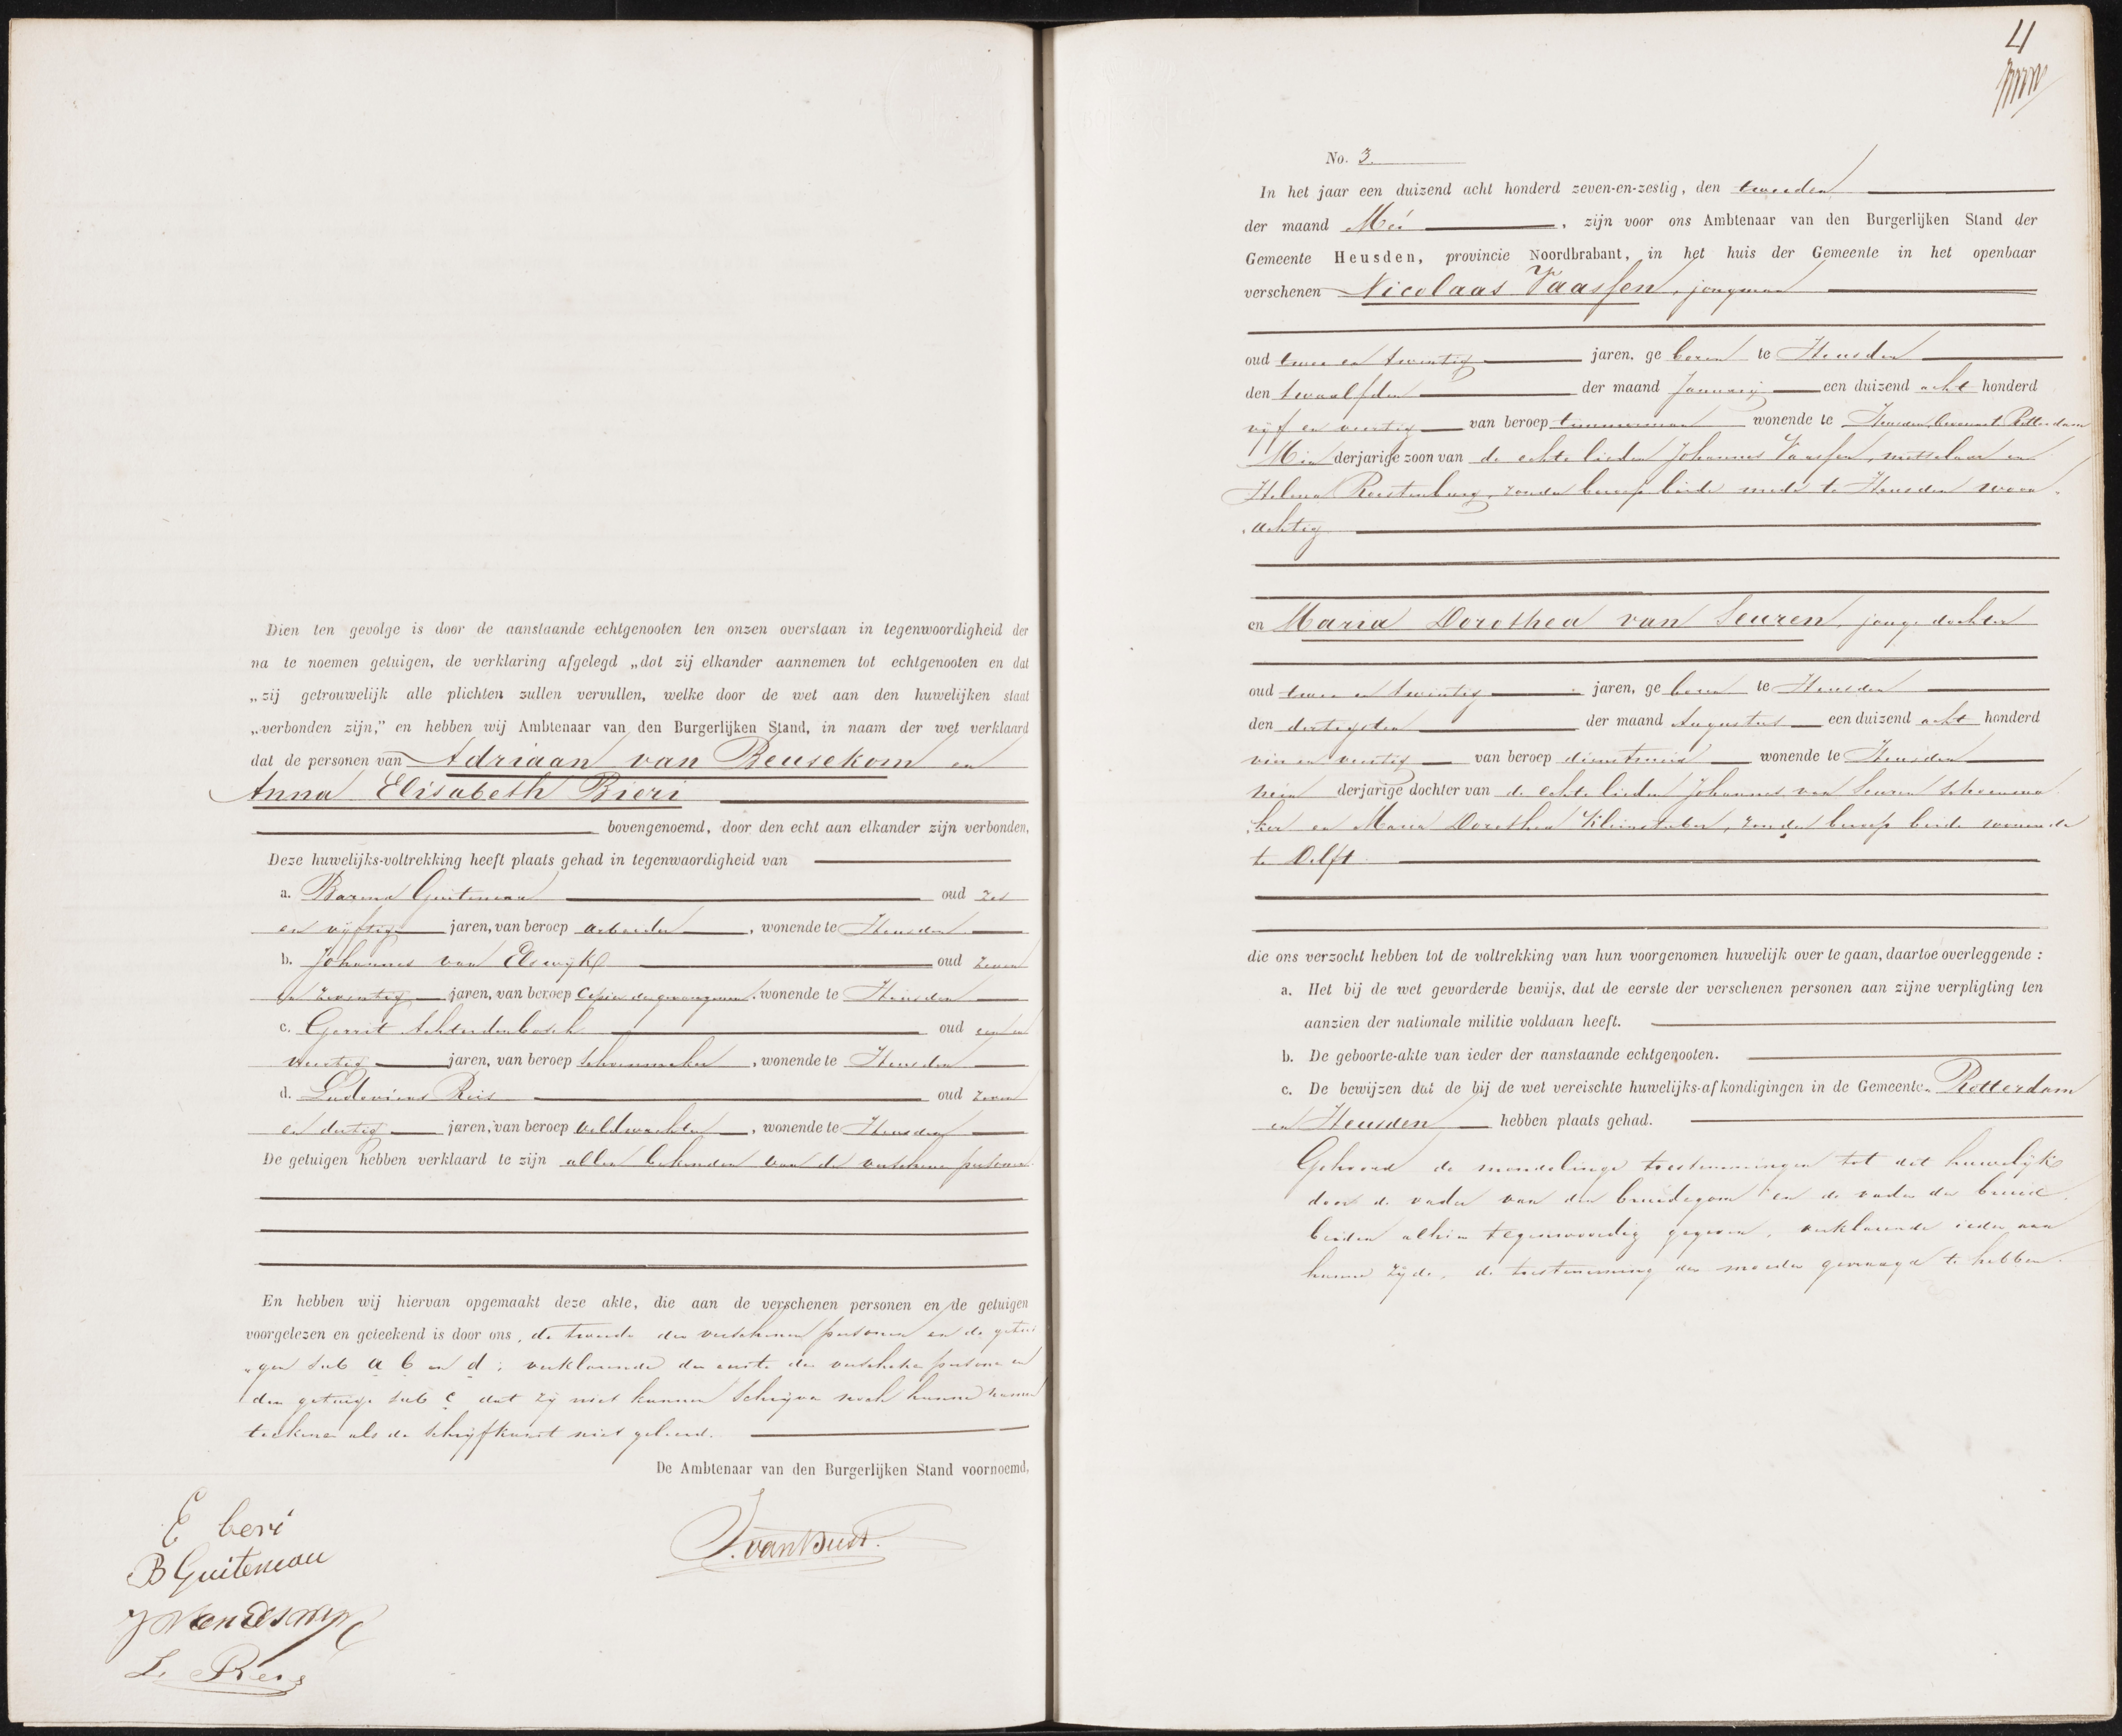 Dien ten gevolge is door de aanstaande echtgenooten ten onzen overstaan in tegenwoordigheid der
na te noemen getuigen, de verklaring afgelegd „dat zij elkander aannemen tot echtgenooten en dat
„zij getrouwelijk alle plichten zullen vervullen, welke door de wet aan den huwelijken staat
„verbonden zijn,” en hebben wij Ambtenaar van den Burgerlijken Stand, in naam der wet verklaard
dat de personen van Adriaan van Beusekom en
Anna Elisabeth Bieri
bovengenoemd, door den echt aan elkander zijn verbonden,
Deze huwelijks-voltrekking heeft plaats gehad in tegenwaordigheid van
a. Barend Guiteneau oud zes
en vijftig jaren, van beroep arbeider, wonende te Heusden
b. Johannes van Elswijk oud zeven
en zeventig jaren, van beroep Cipier der gevangenis, wonende te Heusden
c. Gerrit Achterdenbosch oud een en
veertig jaren, van beroep schoenmaker, wonende te Heusden
d. Ludovicus Reis oud zeven
en dertig jaren, van beroep veldwachter, wonende te Heusden
De getuigen hebben verklaard te zijn allen bekenden van de verschenen personen
En hebben wij hiervan opgemaakt deze akte, die aan de verschenen personen en de getuigen
voorgelezen en geteekend is door ons, de tweede der verschenen personen en de getui
„gen sub a b en d; verklarende de eerste der verschenen personen en
den getuige sub c dat zij niet kunnen schrijven noch hunne namen
teekenen als de schrijfkunst niet geleerd.
De Ambtenaar van den Burgerlijken Stand voornoemd,
E beri
B Guiteneau
J Van Elswijk
L. Reis
4
No. 3
In het jaar een duizend acht honderd zeven-en-zestig, den tweeden
der maand Mei, zijn voor ons Ambtenaar van den Burgerlijken Stand der
Gemeente Heusden, provincie Noordbrabant, in het huis der Gemeente in het openbaar
verschenen Nicolaas Vaassen, jongman
oud twee en twintig jaren, ge boren te Heusden
den twaalfden der maand Januarij een duizend acht honderd
vijf en veertig van beroep timmerman wonende te Heusden, bevorens te Rotterdam
Min derjarige zoon van de echte lieden Johannes Vaassen, metselaar en
Helena Roestenburg, zonder beroep beide mede te Heusden woon„
„achtig
en Maria Dorothea van Seuren, jonge dochter
oud twee en twintig jaren, ge boren te Heusden
den dertigsten der maand Augustus een duizend acht honderd
vier en veertig van beroep dienstmeid wonende te Heusden
min derjarige dochter van de echte lieden Johannes van Seuren schoenma„
„ker en Maria Dorothea Kleinstuber, zonder beroep beide wonende
te Delft
die ons verzocht hebben tot de voltrekking van hun voorgenomen huwelijk over te gaan, daartoe overleggende :
a. Het bij de wet gevorderde bewijs, dat de eerste der verschenen personen aan zijne verpligting ten
aanzien der nationale militie voldaan heeft.
b. De geboorte-akte van ieder der aanstaande echtgenooten.
c. De bewijzen dat de bij de wet vereischte huwelijks-afkondigingen in de Gemeenten Rotterdam
en Heusden hebben plaats gehad.
Gehoord de mondelinge toestemmingen tot dit huwelijk
door de vader van den bruidegom en de vader der bruid
beiden alhier tegenwoordig gegeven, verklarende ieder aan
hunne zijde, de toestemming der moeder gevraagd te hebben.